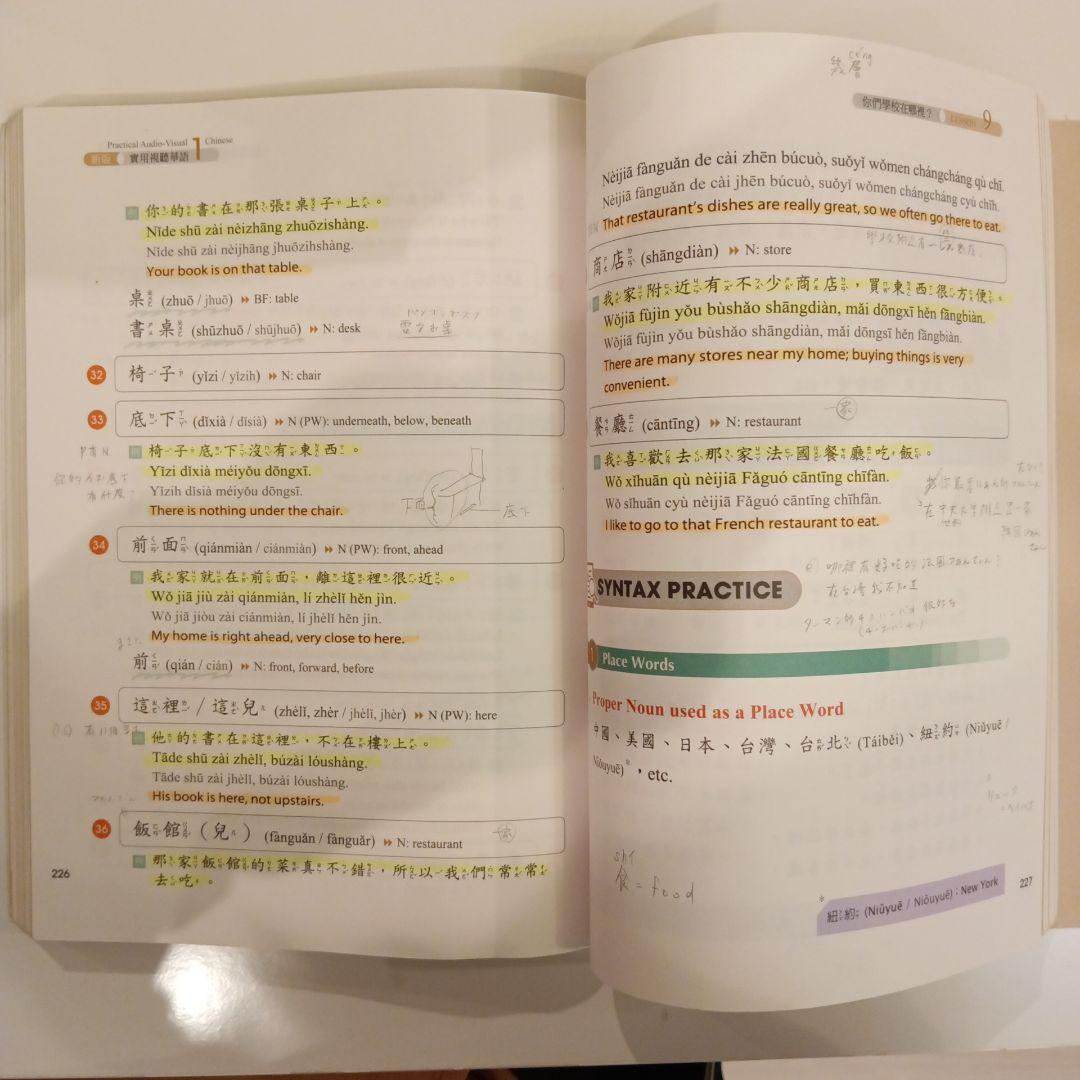 Practical Audio-Visual 1 Chinese
新版 實用視聽華語
你的書在那張桌子上。
Nǐde shū zài nèizhāng zhuōzishàng.
Nǐde shū zài nèijhāng jhuōzihshàng.
Your book is on that table.
桌 (zhuō / jhuō) BF: table
書桌 (shūzhuō / shūjhuō) N: desk
32 椅子 (yǐzi / yǐzih) N: chair
33 底下 (dǐxià / dǐsià) N (PW): underneath, below, beneath
椅子底下沒有東西。
Yǐzi dǐxià méiyǒu dōngxī.
Yǐzih dǐsià méiyǒu dōngsī.
There is nothing under the chair.
下面
底下
34 前面 (qiánmiàn / ciánmiàn) N (PW): front, ahead
我家就在前面，離這裡很近。
Wǒ jiā jiù zài qiánmiàn, lí zhèlǐ hěn jìn.
Wǒ jiā jiòu zài ciánmiàn, lí jhèlǐ hěn jìn.
My home is right ahead, very close to here.
前 (qián / cián) N: front, forward, before
35 這裡 / 這兒 (zhèlǐ, zhèr / jhèlǐ, jhèr) N (PW): here
他的書在這裡，不在樓上。
Tāde shū zài zhèlǐ, búzài lóushàng.
Tāde shū zài jhèlǐ, búzài lóushàng.
His book is here, not upstairs.
36 飯館（兒） (fànguǎn / fànguǎr) N: restaurant
家
那家飯館的菜真不錯，所以我們常常
去吃。
226
幾層
céng
你們學校在哪裡？ LESSON 9
Nèijiā fànguǎn de cài zhēn búcuò, suǒyǐ wǒmen chángcháng qù chī.
Nèijiā fànguǎn de cài jhēn búcuò, suǒyǐ wǒmen chángcháng cyù chīh.
That restaurant's dishes are really great, so we often go there to eat.
商店 (shāngdiàn) N: store
我家附近有不少商店，買東西很方便。
Wǒjiā fùjìn yǒu bùshǎo shāngdiàn, mǎi dōngxī hěn fāngbiàn.
Wǒjiā fùjìn yǒu bùshǎo shāngdiàn, mǎi dōngsī hěn fāngbiàn.
There are many stores near my home; buying things is very
convenient.
餐廳 (cāntīng) N: restaurant
一家
我喜歡去那家法國餐廳吃飯。
Wǒ xǐhuān qù nèijiā Fǎguó cāntīng chīfàn.
Wǒ sǐhuān cyù nèijiā Fǎguó cāntīng chīhfàn.
I like to go to that French restaurant to eat.
SYNTAX PRACTICE
1 Place Words
Proper Noun used as a Place Word
中國、美國、日本、台灣、台北 (Táiběi)、紐約 (Niǔyuē /
Niǒuyuē)*，etc.
食 = food
* 紐約 (Niǔyuē / Niǒuyuē)：New York
227